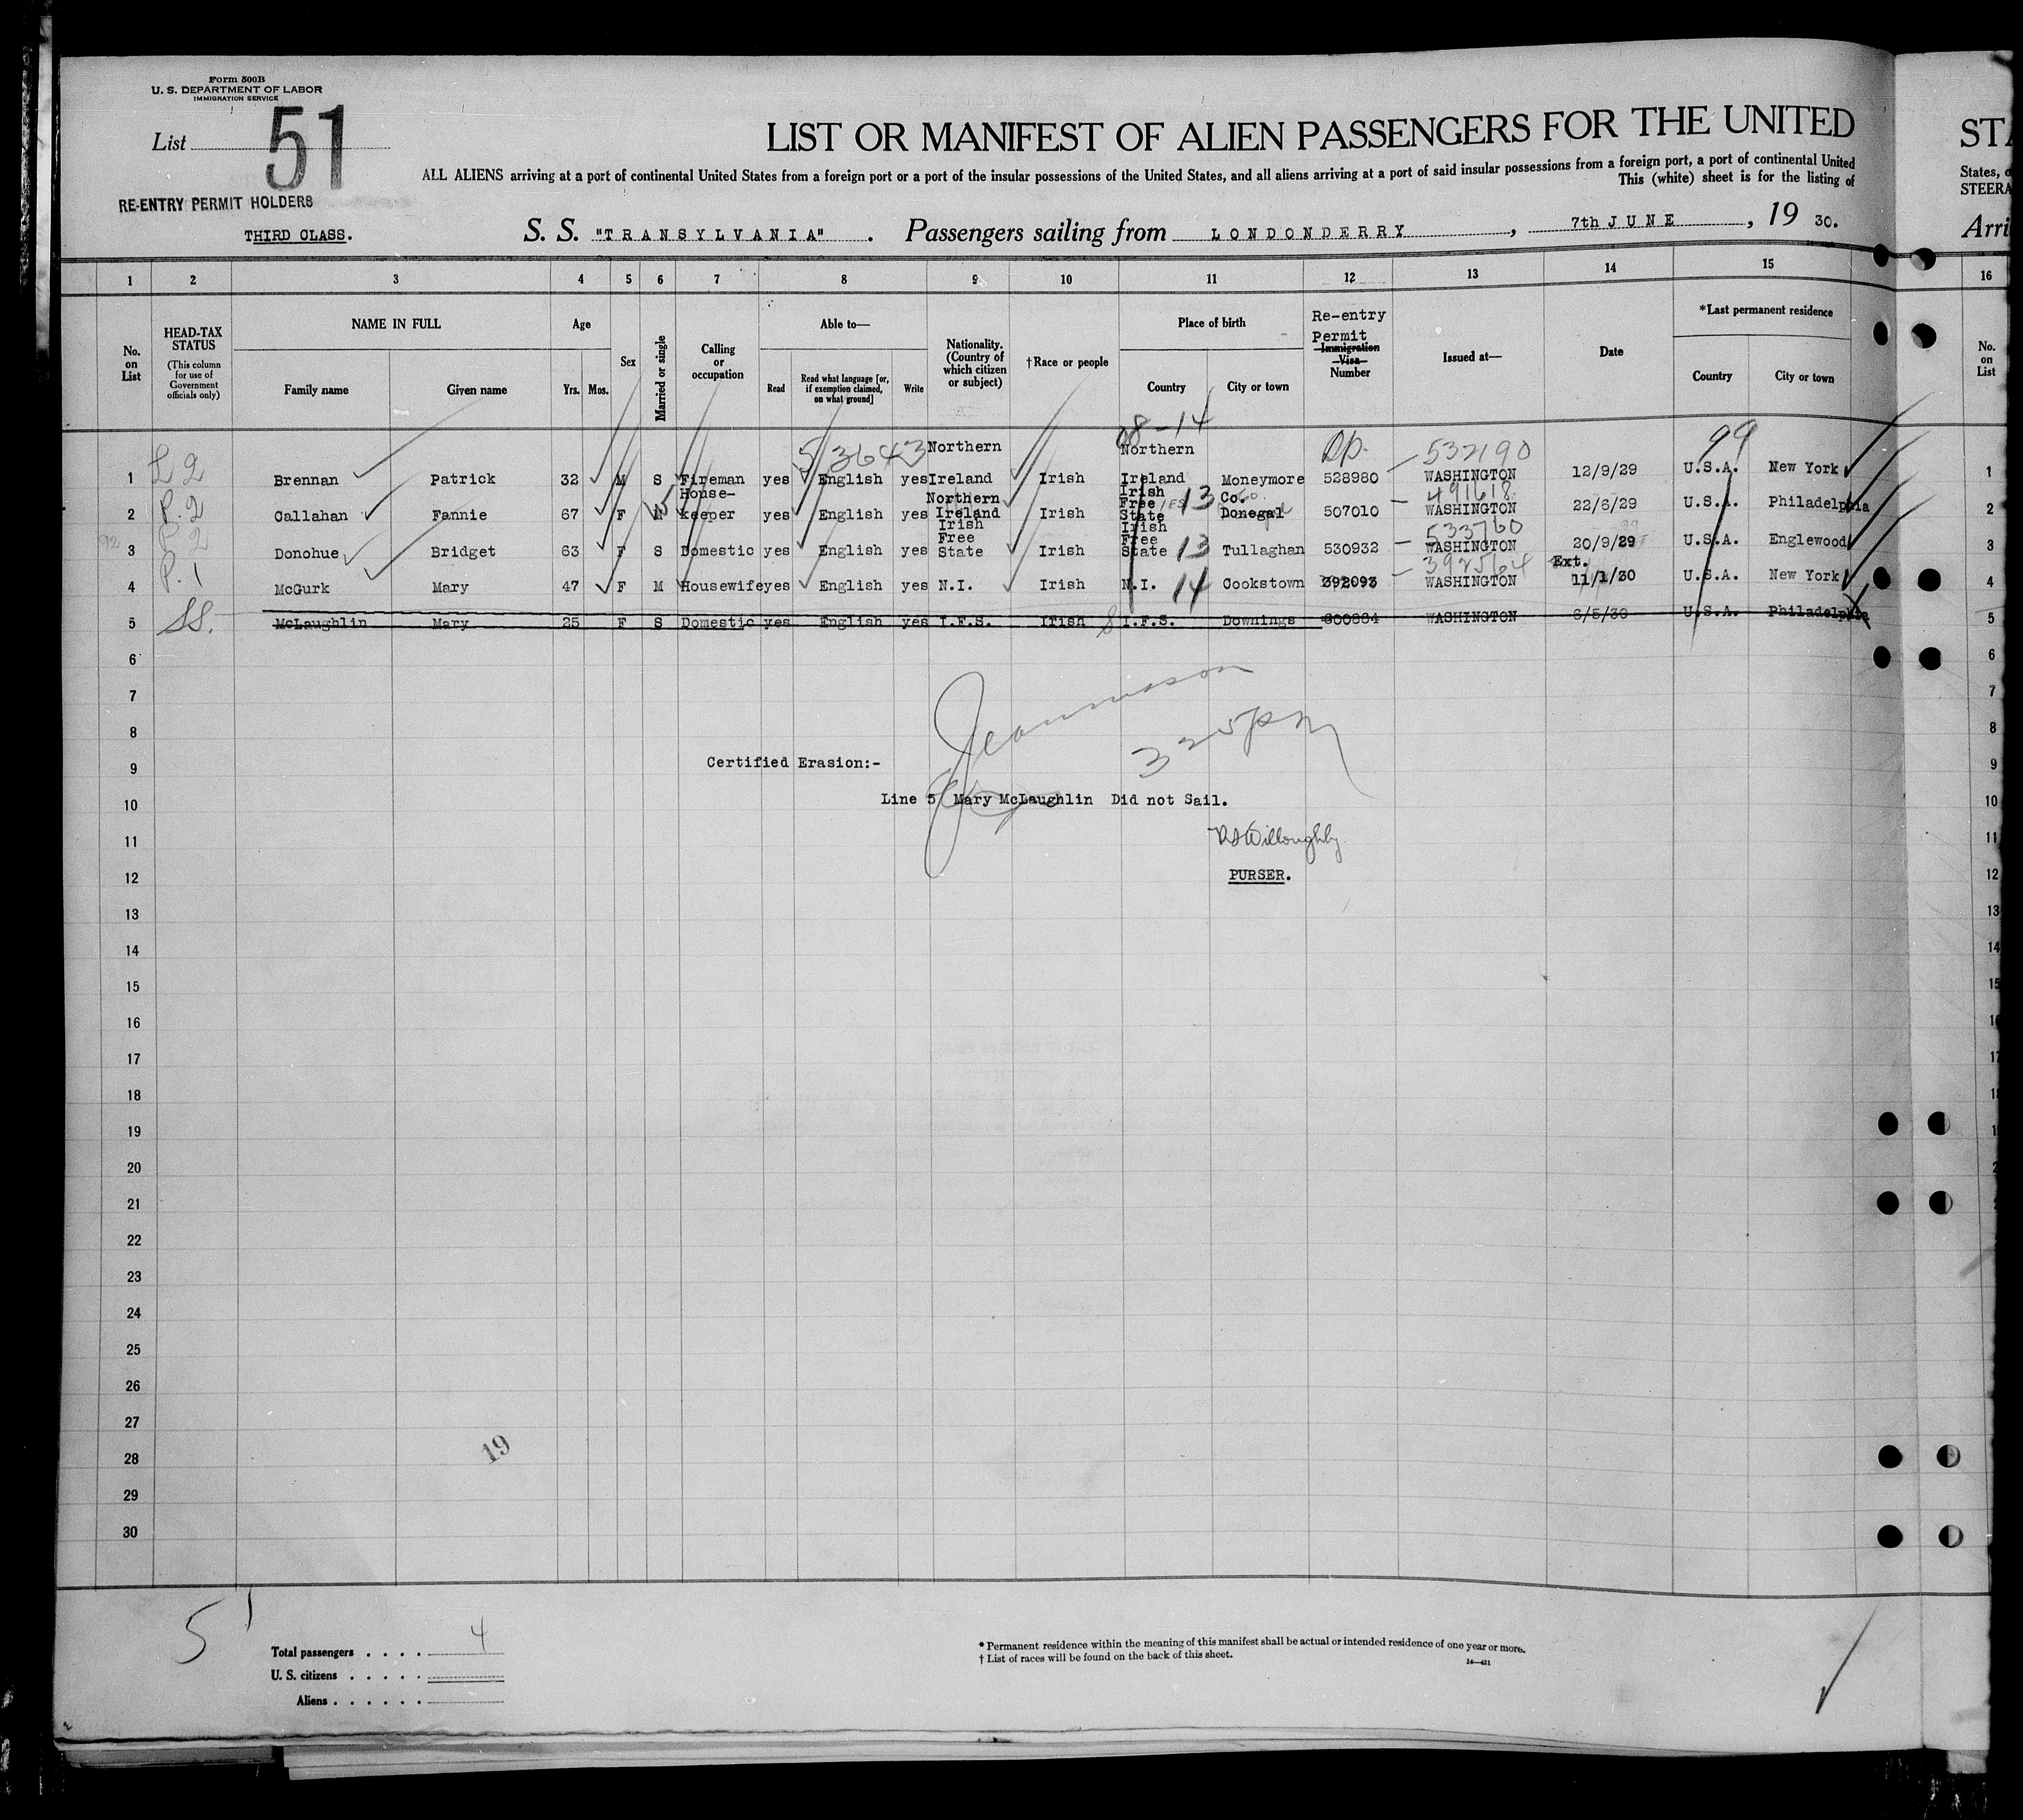 Form 500B
U. S. DEPARTMENT OF LABOR
IMMIGRATION SERVICE
List 51
RE-ENTRY PERMIT HOLDERS
THIRD CLASS.
LIST OR MANIFEST OF ALIEN PASSENGERS FOR THE UNITED
ALL ALIENS arriving at a port of continental United States from a foreign port or a port of the insular possessions of the United States, and all aliens arriving at a port of said insular possessions from a foreign port, a port of continental United
This (white) sheet is for the listing of
S. S. "TRANSYLVANIA" . Passengers sailing from LONDONDERRY , 7th JUNE , 19 30.
STA
States, o
STEERA
Arri
1 2 3 4 5 6 7 8 9 10 11 12 13 14 15 16
No. on List
HEAD-TAX STATUS
(This column for use of Government officials only)
NAME IN FULL
Family name Given name
Age
Yrs. Mos.
Sex
Married or single
Calling or occupation
Able to—
Read
Read what language [or, if exemption claimed, on what ground]
Write
Nationality. (Country of which citizen or subject)
†Race or people
Place of birth
Country City or town
Re-entry Permit
Immigration Visa Number
Issued at—
Date
*Last permanent residence
Country City or town
No. on List
08-14
53643 Northern Northern 532190 99
1 L2 Brennan Patrick 32 M S Fireman yes English yes Ireland Irish Ireland Moneymore 528980 WASHINGTON 12/9/29 U.S.A. New York 1
491618
2 P.2 Callahan Fannie 67 F M House-keeper yes English yes Northern Ireland Irish Irish Free State 13 Co. Donegal 507010 WASHINGTON 22/6/29 U.S.A. Philadelphia 2
533760
3 P2 Donohue Bridget 63 F S Domestic yes English yes Irish Free State Irish Irish Free State 13 Tullaghan 530932 WASHINGTON 20/9/29 U.S.A. Englewood 3
3925164 Ext.
4 P.1 McGurk Mary 47 F M Housewife yes English yes N.I. Irish N.I. 14 Cookstown 392093 WASHINGTON 11/1/30 U.S.A. New York 4
5 SS. McLaughlin Mary 25 F S Domestic yes English yes I.F.S. Irish I.F.S. Downings 600884 WASHINGTON 6/5/30 U.S.A. Philadelphia 5
6 6
7 7
8 325pm 8
9 Certified Erasion:- 9
10 Line 5 Mary McLaughlin Did not Sail. 10
11 Willoughby 11
12 PURSER. 12
13 13
14 14
15 15
16
17 17
18
19
20
21
22
23
24
25
26
27
28 19
29
30
5 1
Total passengers . . . . 4
U. S. citizens . . . . .
Aliens . . . . . .
* Permanent residence within the meaning of this manifest shall be actual or intended residence of one year or more.
† List of races will be found on the back of this sheet.
14—431